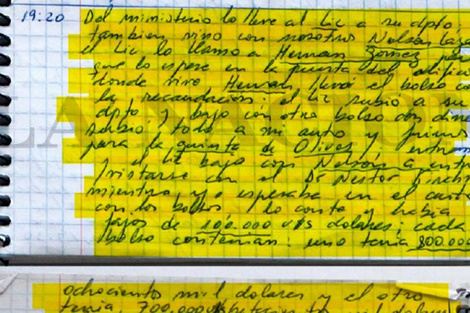 19:20 Del ministerio lo lleve al Lic a su dpto,
tambien vino con nosotros Nelson Lazar
el Lic lo llamo a Hernan Gomez para
que lo espere en la puerta del edificio
donde vive Hernan llevó el bolso con
la recaudacion; el Lic subio a su
dpto y bajo con otro bolso con dinero
subio todo a mi auto y fuimos
para la quinta de Olivos, entramos
y el Lic bajo con Nelson a entre
vistarse con el Dr Nestor Kirchn
mientras yo esperaba en el auto
con los bolsos, lo conte y habia
fajos de 100.000 U$S dolares; cada
bolso contenian: uno tenia 800.000
ochocientos mil dolares y el otro
tenia, 700.000 mil dolares